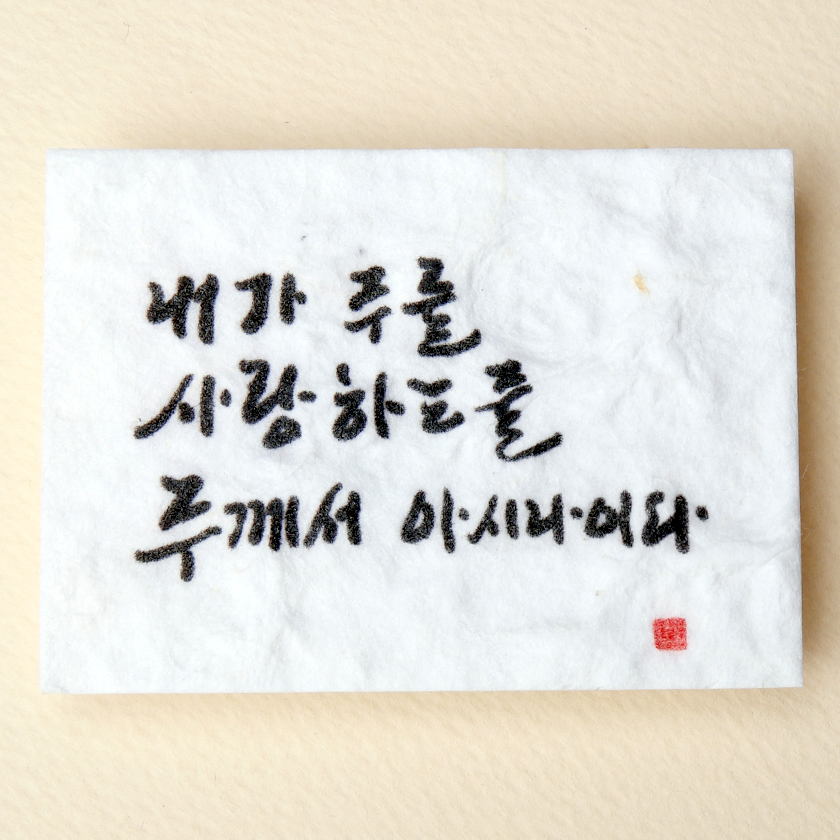 내가 주를
사랑하는줄
주께서 아시나이다